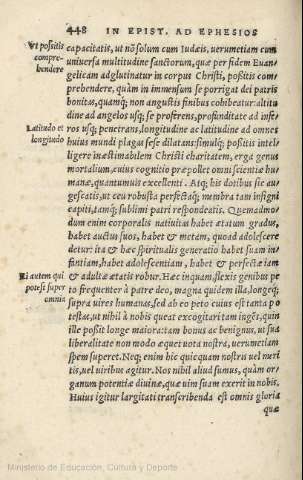 448 IN EPIST. AD EPHESIOS
Vt possitis
compre-
hendere
capacitatis, ut nõ solum cum Iudæis, uerumetiam cum
uniuersa multitudine sanctorum, quæ per fidem Euan-
gelicam adglutinatur in corpus Christi, possitis com-
prehendere, quàm in immensum se porrigat dei patris
bonitas, quamq; non angustis finibus cohibeatur: altitu
dine ad angelos usq; se proferens, profunditate ad infe-
Latitudo et
longitudo
ros usq; penetrans, longitudine ac latitudine ad omnes
huius mundi plagas sese dilatans: simulq; possitis intel-
ligere inæstimabilem Christi charitatem, erga genus
mortalium, cuius cognitio præpollet omni scientiæ hu-
manæ, quantumuis excellenti. Atq; his dotibus sic au-
gescatis, ut ceu robusta perfectaq; membra tam insigni
capiti, tamq; sublimi patri respondeatis. Quemadmo-
dum enim corporalis natiuitas habet ætatum gradus,
habet auctus suos, habet & metam, quoad adolescere
detur: ita & hæc spiritualis generatio habet suam in-
fantiam, habet adolescentiam, habet & perfectæ iam
Ei autem qui
potest super
omnia
& adultæ ætatis robur. Hæc inquam, flexis genibus pe
to frequenter à patre deo, magna quidem illa, longeq;
supra uires humanas, sed ab eo peto cuius est tanta po
testas, ut nihil à nobis queat excogitari tam ingẽs, quin
ille possit longe maiora: tam bonus ac benignus, ut sua
liberalitate non modo æquet uota nostra, uerumetiam
spem superet. Neq; enim hic quicquam nostris uel meri
tis, uel uiribus agitur. Nos nihil aliud sumus, quàm or-
ganum potentiæ diuinæ, quæ uim suam exerit in nobis.
Huius igitur largitati transcribenda est omnis gloria
quæ
Ministerio de Educación, Cultura y Deporte